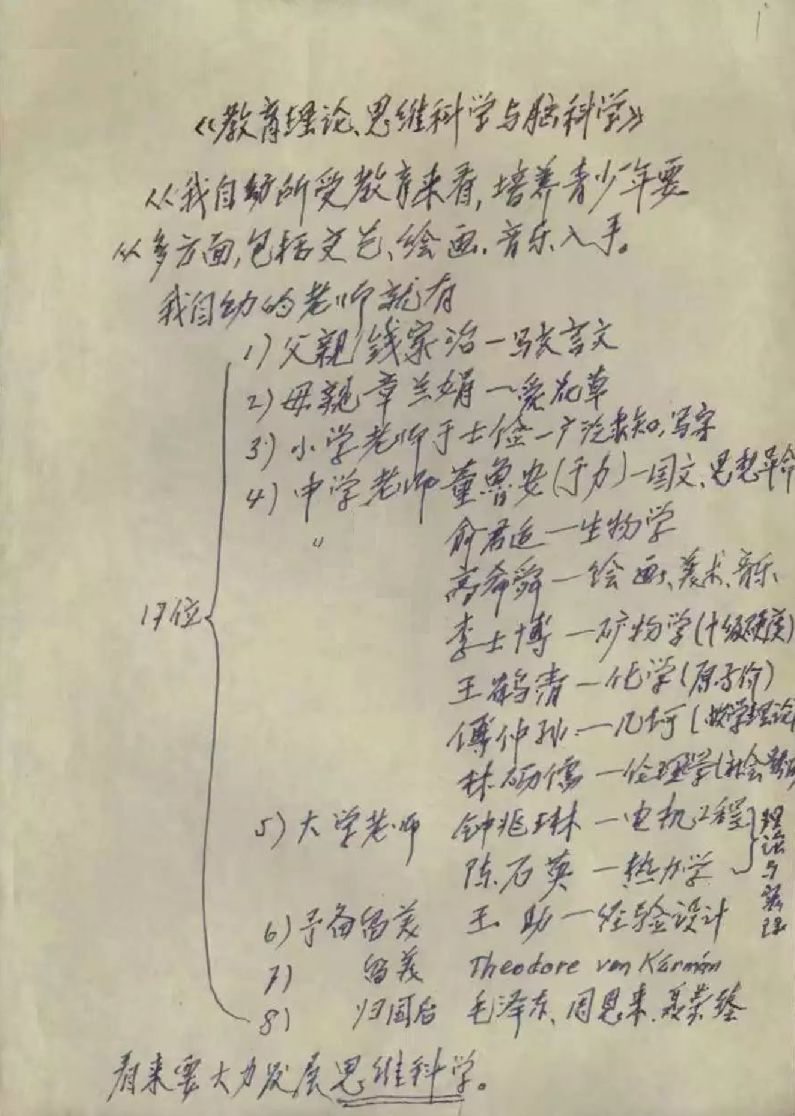 《教育理论、思维科学与脑科学》
从我自幼所受教育来看,培养青少年要
从多方面,包括文艺、绘画、音乐入手。
我自幼的老师就有
17位
1) 父亲 钱家治—写文言文
2) 母亲 章兰娟—爱花草
3) 小学老师 于士俭—广泛求知,写字
4) 中学老师 董鲁安(于力)—国文、思想革命
〃 俞君适—生物学
高希舜—绘画、美术、音乐
李士博—矿物学(十级硬度)
王鹤清—化学(原子价)
傅仲孙—几何(数学理论
林砺儒—伦理学(社会
5) 大学老师 钟兆琳—电机工程
陈石英—热力学
理论与实际
6) 予备留美 王助—经验设计
7) 留美 Theodore von Kármán
8) 归国后 毛泽东、周恩来、聂荣臻
看来要大力发展思维科学。